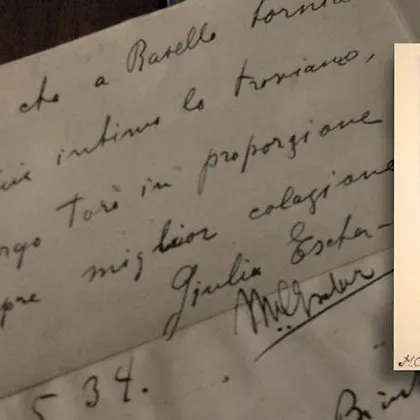 che a Ravello tornia
intimo lo troviamo,
Toro in proporzione
pre miglior colazione
Giulia Escher-
MCEscher
5 34.
M.C